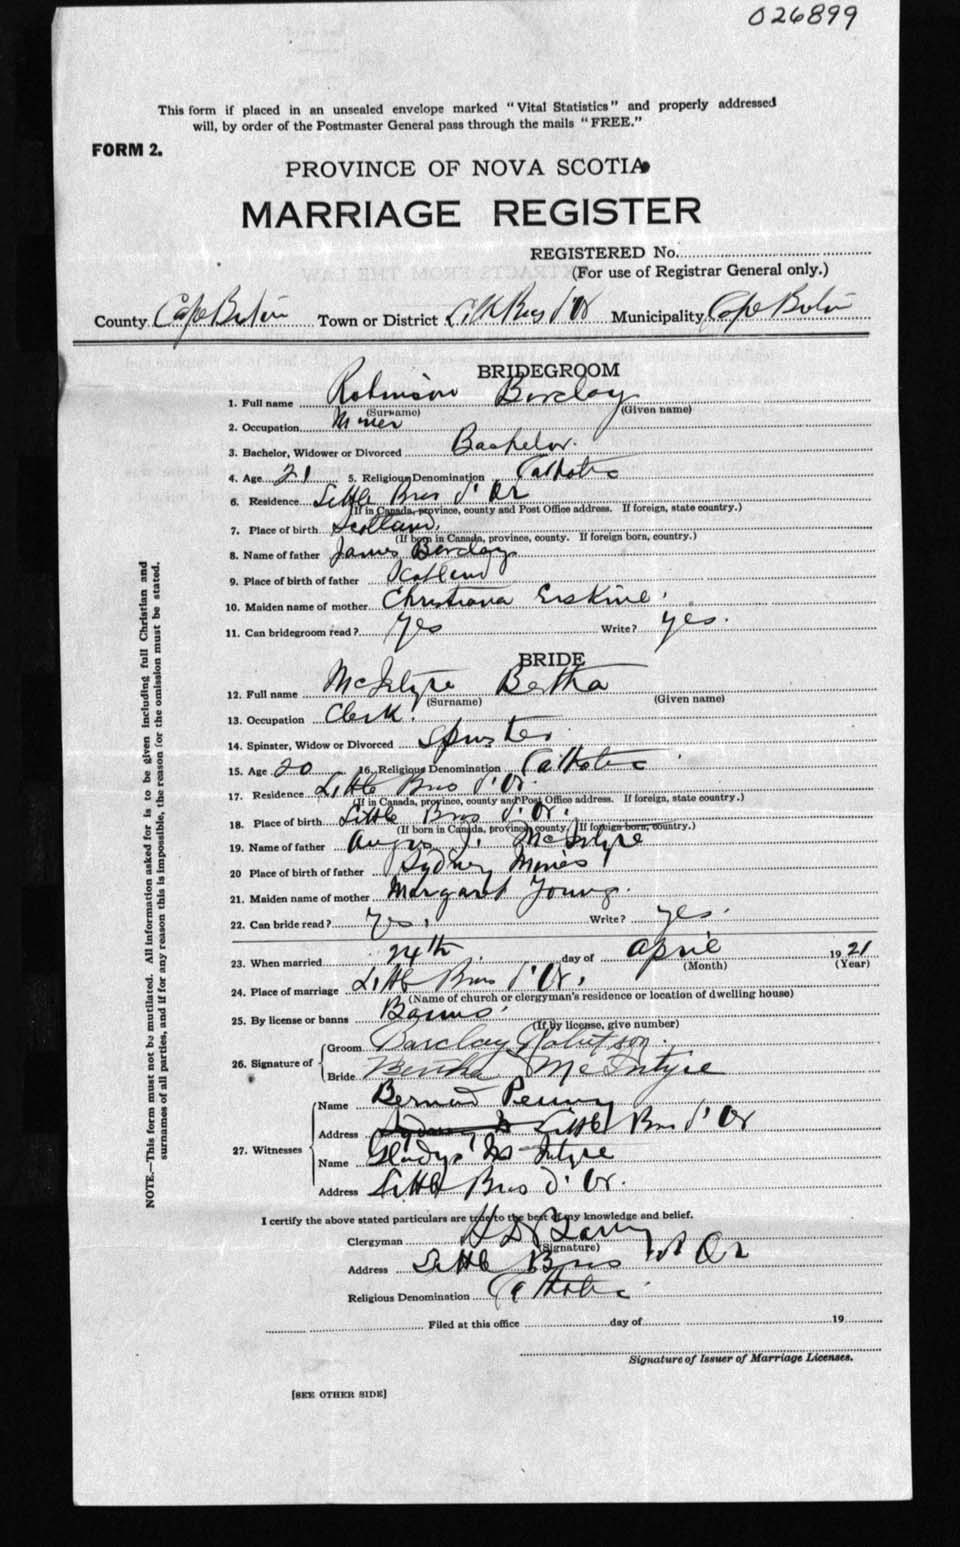 026899
This form if placed in an unsealed envelope marked "Vital Statistics" and properly addressed
will, by order of the Postmaster General pass through the mails "FREE."
FORM 2.
PROVINCE OF NOVA SCOTIA
MARRIAGE REGISTER
REGISTERED No.
(For use of Registrar General only.)
County Cape Breton Town or District Little Bras d'Or Municipality Cape Breton
BRIDEGROOM
1. Full name Robinson Barclay
(Surname) (Given name)
2. Occupation Miner
3. Bachelor, Widower or Divorced Bachelor.
4. Age 21 5. Religious Denomination Catholic
6. Residence Little Bras d'Or
(If in Canada, province, county and Post Office address. If foreign, state country.)
7. Place of birth Scotland.
(If born in Canada, province, county. If foreign born, country.)
8. Name of father James Barclay
9. Place of birth of father Scotland
10. Maiden name of mother Christiana Erskine.
11. Can bridegroom read? Yes Write? yes.
BRIDE
12. Full name McIntyre Bertha
(Surname) (Given name)
13. Occupation Clerk.
14. Spinster, Widow or Divorced Spinster
15. Age 20 16. Religious Denomination Catholic
17. Residence Little Bras d'Or
(If in Canada, province, county and Post Office address. If foreign, state country.)
18. Place of birth Little Bras d'Or.
(If born in Canada, province, county. If foreign born, country.)
19. Name of father Angus J. McIntyre
20 Place of birth of father Sydney Mines
21. Maiden name of mother Margaret Young.
22. Can bride read? Yes. Write? yes.
23. When married 24th day of April 1921
(Month) (Year)
24. Place of marriage Little Bras d'Or.
(Name of church or clergyman's residence or location of dwelling house)
25. By license or banns Banns.
(If by license, give number)
26. Signature of
Groom Barclay Robertson.
Bride Bertha McIntyre
27. Witnesses
Name Bernard Penny
Address Little Bras d'Or
Name Gladys McIntyre
Address Little Bras d'Or.
I certify the above stated particulars are true to the best of my knowledge and belief.
Clergyman
(Signature)
Address Little Bras d'Or
Religious Denomination Catholic
Filed at this office day of 19
Signature of Issuer of Marriage Licenses.
[SEE OTHER SIDE]
NOTE.—This form must not be mutilated. All information asked for is to be given including full Christian and
surnames of all parties, and if for any reason this is impossible, the reason for the omission must be stated.